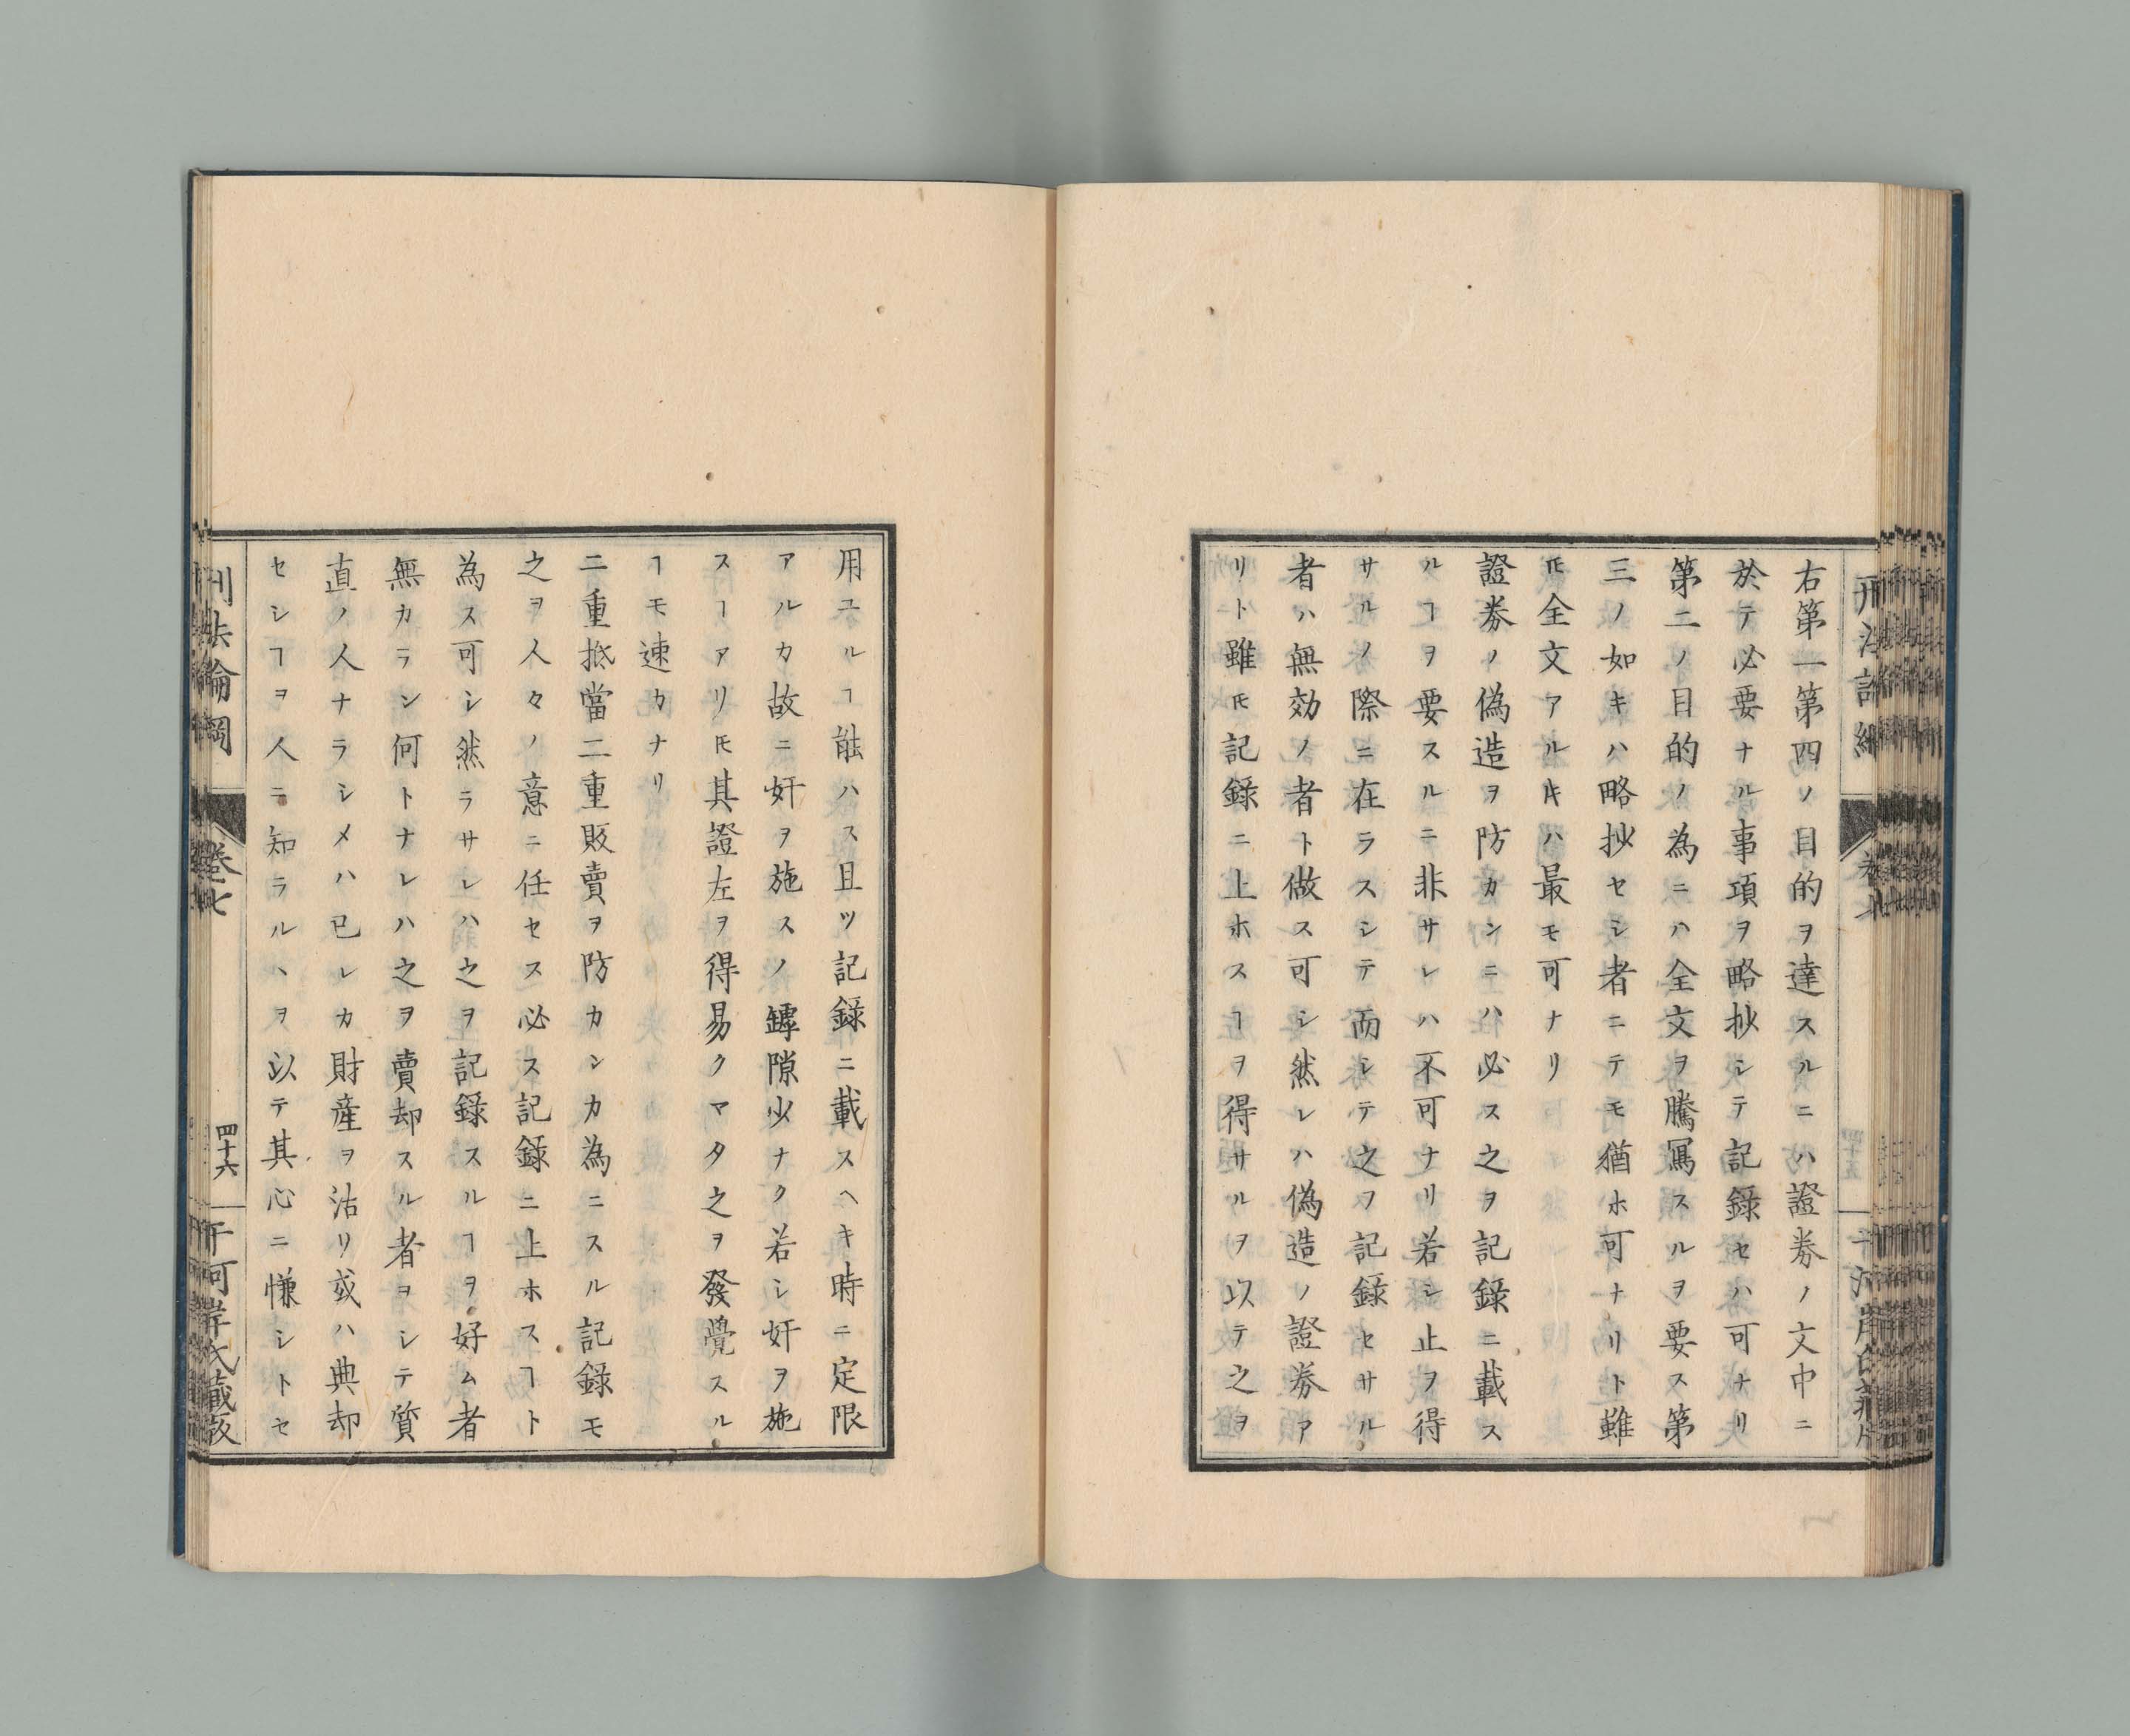 右第一第四ノ目的ヲ達スルニハ證券ノ文中ニ
於テ必要ナル事項ヲ略抄シテ記録セハ可ナリ
第二ノ目的ノ為ニハ全文ヲ騰寫スルヲ要ス第
三ノ如キハ略抄セシ者ニテモ猶ホ可ナリト雖
𪜈全文アルキハ最モ可ナリ
證券ノ偽造ヲ防カンニハ必ス之ヲ記録ニ載ス
ルヿヲ要スルニ非サレハ不可ナリ若シ止ヲ得
サルノ際ニ在ラスシテ而シテ之ヲ記録セサル
者ハ無効ノ者ト做ス可シ然レハ偽造ノ證券ア
リト雖𪜈記録ニ上ホスヿヲ得サルヲ以テ之ヲ
用ユルヿ能ハス且ツ記録ニ載スヘキ時ニ定限
アルカ故ニ奸ヲ施スノ罅隙少ナク若シ奸ヲ施
スヿアリ𪜈其證左ヲ得易クマタ之ヲ發覺スル
ヿモ速カナリ
二重抵當二重販賣ヲ防カンカ為ニスル記録モ
之ヲ人々ノ意ニ任セス必ス記録ニ上ホスヿト
為ス可シ然ラサレハ之ヲ記録スルヿヲ好ム者
無カラン何トナレハ之ヲ賣却スル者ヲシテ質
直ノ人ナラシメハ已レカ財産ヲ沽リ或ハ典却
セシヿヲ人ニ知ラルヽヲ以テ其心ニ慊シトセ
刑法論綱
卷七
四十六
千河岸氏藏版